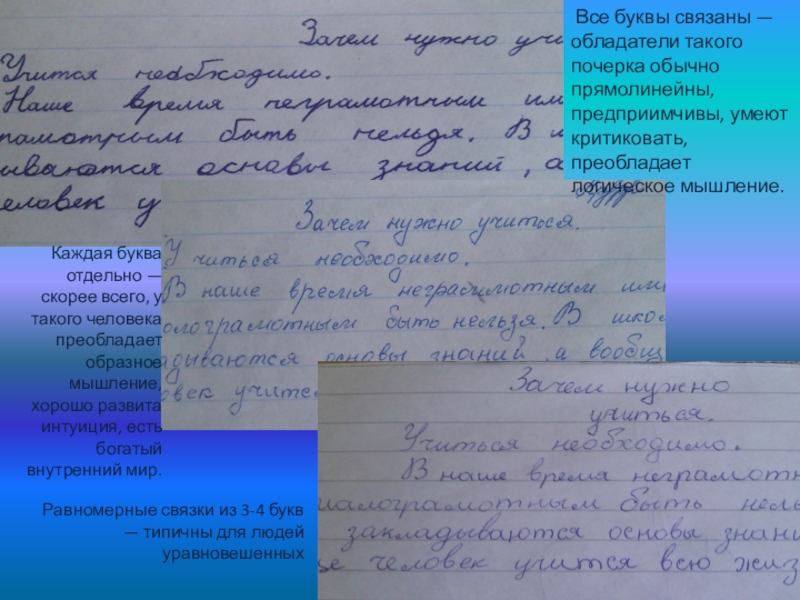 Зачем нужно учи
Учится необходимо.
Наше время неграмотным им
рамотным быть нельзя. В
ываются основы знаний, а
еловек у
Все буквы связаны —
обладатели такого
почерка обычно
прямолинейны,
предприимчивы, умеют
критиковать,
преобладает
логическое мышление.
Зачем нужно учиться.
Учиться необходимо.
В наше время неграмотным или
алограмотным быть нельзя. В шко
адываются основы знаний, а вообщ
овек учится
Каждая буква
отдельно —
скорее всего, у
такого человека
преобладает
образное
мышление,
хорошо развита
интуиция, есть
богатый
внутренний мир.
Зачем нужно
учиться.
Учиться необходимо.
В наше время неграмотн
малограмотным быть нель
закладываются основы знани
ще человек учится всю жиз
Равномерные связки из 3-4 букв
— типичны для людей
уравновешенных